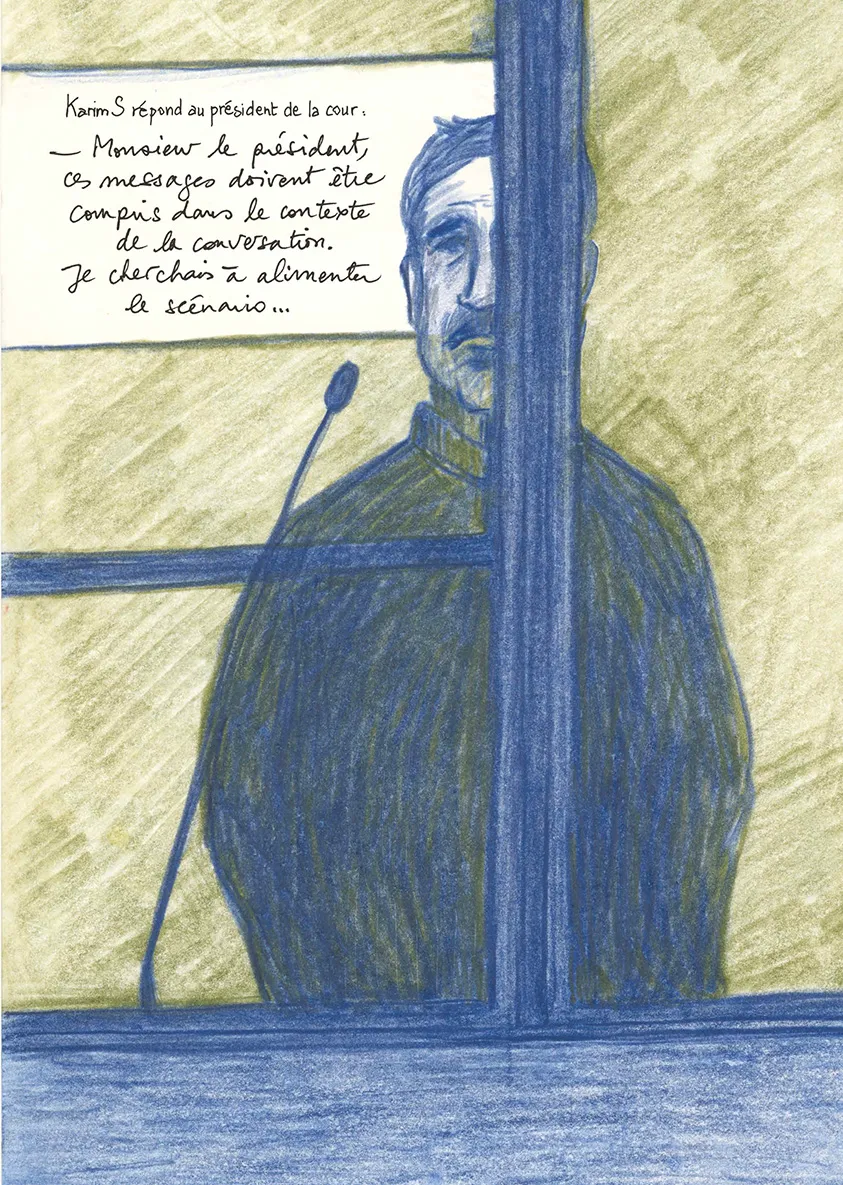 Karim S répond au président de la cour :
— Monsieur le président,
ces messages doivent être
compris dans le contexte
de la conversation.
Je cherchais à alimenter
le scénario...